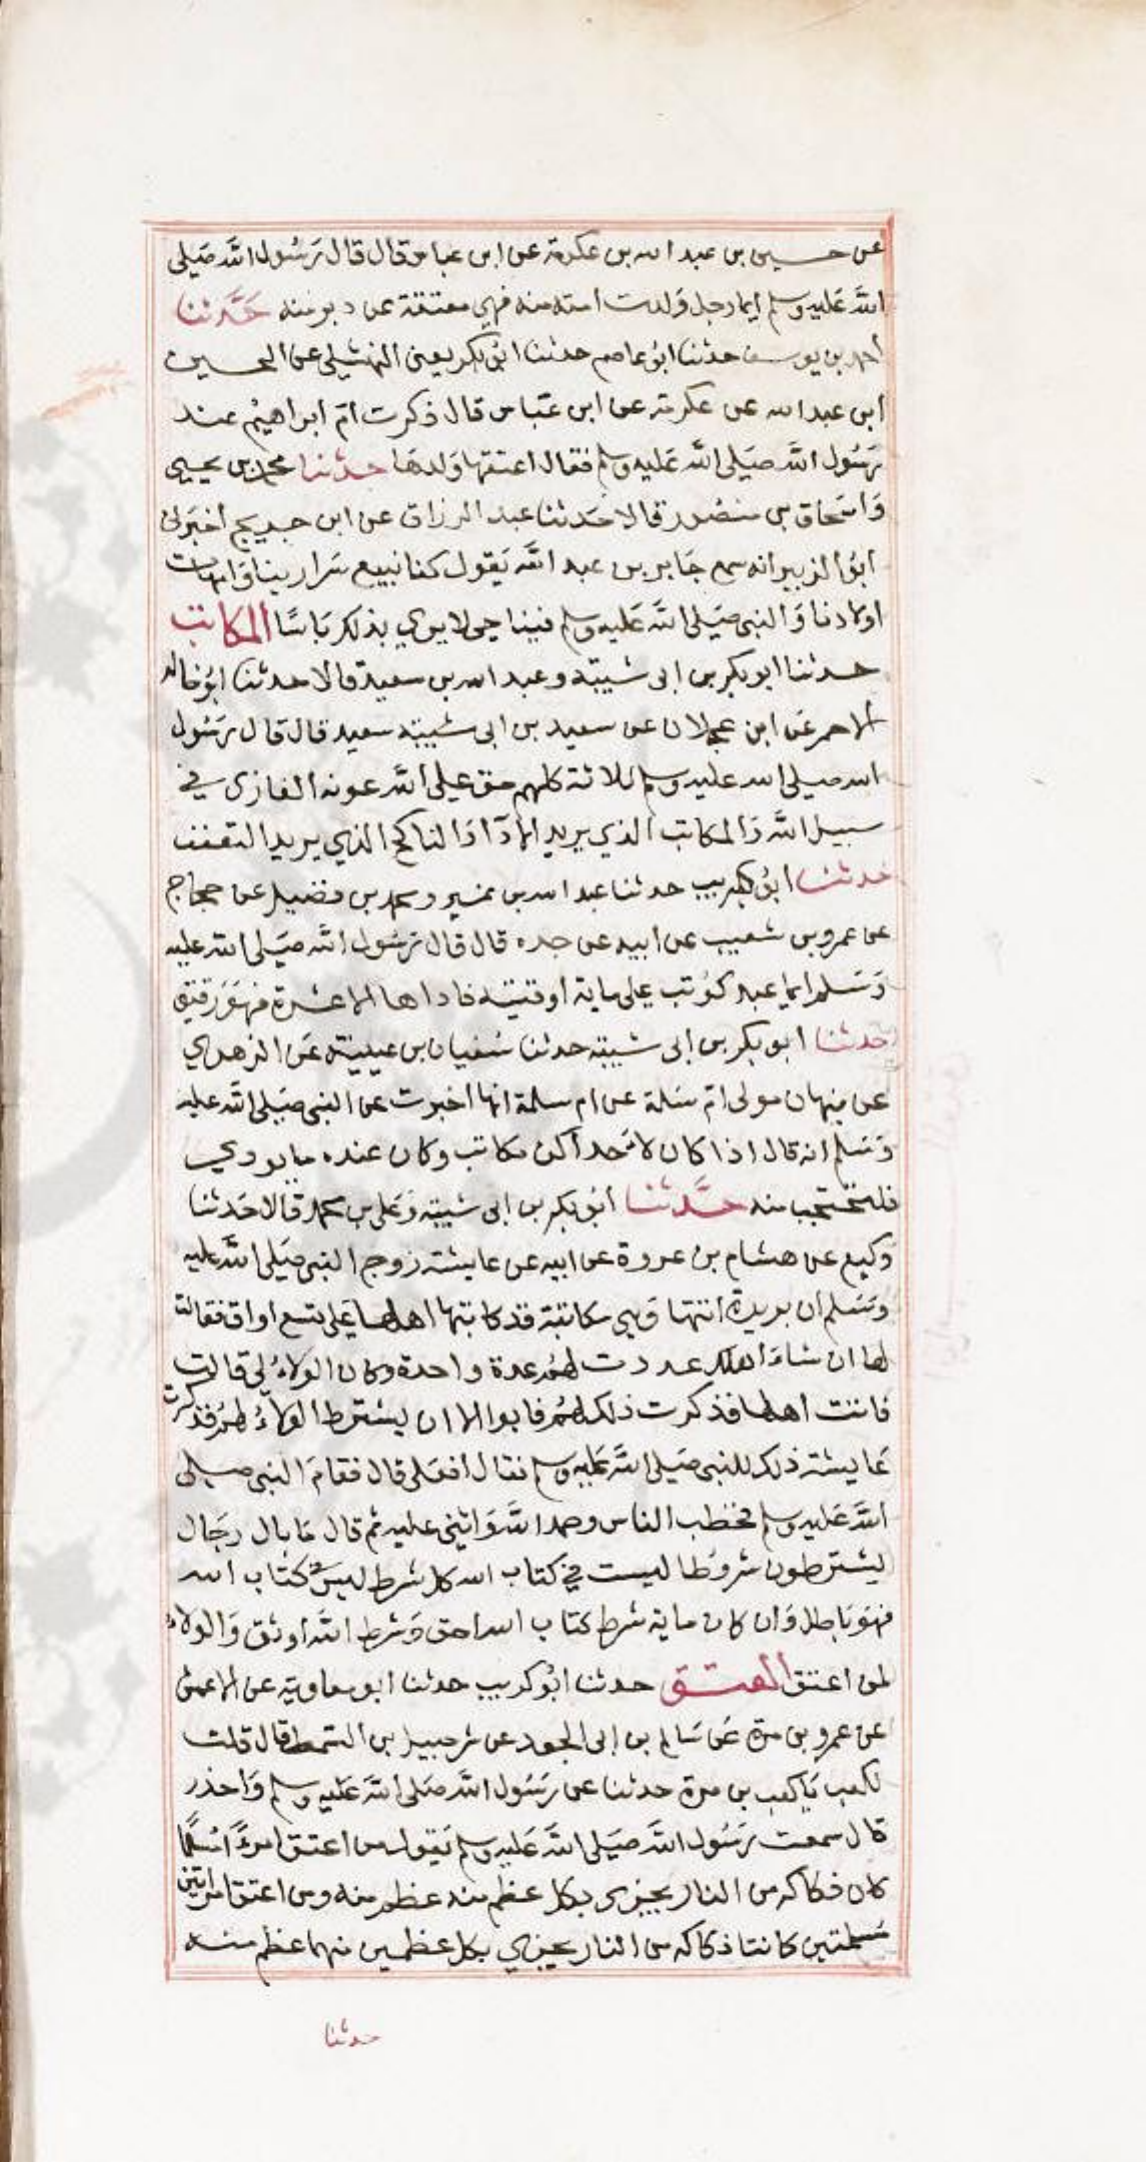 عن حسين بن عبد الله بن عكرمة عن ابن عباس قال قال رَسُول الله صَلى
الله عَليه وسلم ايما رجل وَلدت امته منه فهي معتقة عن دبر منه حَدَّثنا
احمد بن يوسف حدثنا ابُو عاصم حدثنا ابُو بكر يعنى النهشلي عن الحسين
ابن عبد الله عن عكرمة عن ابن عَباس قال ذكرت امّ ابراهيْم عند
رَسُول الله صَلى الله عَليه وسلم فقال اعتقها وَلدهَا حدثنا محمد بن يحيى
وَاسحَاق بن منصُور قالا حَدثنا عبد الرزاق عن ابن جريج اخبَرنى
ابوُ الزبير انه سمع جَابر بن عبد الله يَقول كنا نبيع سَرارينا وَامهات
اولادنا وَالنبى صَلى الله عَليه وسلم فينا حي لا يري بذلك بَاسًا المكاتب
حدثنا ابو بكر بن ابى شيبَة وعبد الله بن سعيد قالا حدثنا ابُو خالد
الاحمر عَن ابن عجلان عن سعيد بن ابى شيبة سعيد قال قال رَسُول
الله صلى الله عليه وسلم ثلاثة كلهم حق على الله عونه الغازى في
سبيل الله وَالمكاتب الذي يريد الادَآ وَالناكح الذي يريد التعفف
حَدثنا ابوُ كريب حدثنا عبد الله بن نمير ومحمد بن فضيل عن حجاج
عن عمرو بن شعيب عن ابيه عن جده قال قال رَسُول الله صَلى الله عليه
وَسَلم ايما عبد كوُتب على ماية اوقيَّة فاداها الا عشرة فهوَ رَقيق
حَدثنا ابو بكر بن ابى شيبَة حدثنا سُفيان بن عيينَة عَن الزهري
عن نبهان مولى امّ سَلمة عن ام سلمة انها اخبرت عن النبى صَلى الله عليه
وَسَلم انه قال اذا كان لاحَداكن مكاتب وكان عنده ما يودي
فلتحتجب منه حَدَّثنا ابُو بكر بن ابى شيبَة وَعَلى بن محمد قالا حَدثنا
وكيع عن هشام بن عروة عن ابيه عن عايشة زوج النبى صَلى الله عليه
وسَلم ان بريرة اتتها وَهي مكاتبة قد كاتبها اهلها عَلى تسع اواق فقالت
لها ان شاءَ اهلك عددت لهُم عدة واحدة وكان الولاءُ لي قالت
فاتت اهلها فذكرت ذلك لهُم فابوا الا ان يشترط الولاءُ لهُم فذكرت
عَايشة ذلك للنبى صَلى الله عَليه وسلم فقال افعَلى قال فقامَ النبى صلى
الله عَليه وسلم فخطب الناس وحمد الله وَاثنى عليه ثم قال مَا بال رجَال
يشترطون شروُطا ليست في كتاب الله كل شرط ليسَ في كتاب الله
فهوَ بَاطل وَان كان ماية شرط كتاب الله احق وَشرط الله اوثق وَالولاءُ
لمن اعتق العتق حدثنا ابُو كريب حدثنا ابو معاوية عن الاعمش
عن عمرو بن مرّة عَن سَالم بن ابى الجعد عن شرحبيل بن السّمط قال قلت
لكعب يَا كعب بن مرة حدثنا عن رَسُول الله صَلى الله عَليه وسلم وَاحذر
قال سمعت رَسُول الله صَلى الله عَليه وسلم يَقول من اعتق امرءً امُسلما
كان فكاكه من النار يجزى بكل عظم منه عظم منه ومن اعتق امراتين
مسلمتين كانتا فكاكه من النار يجزي بكل عظمين منهما عظم منه
حدثنا